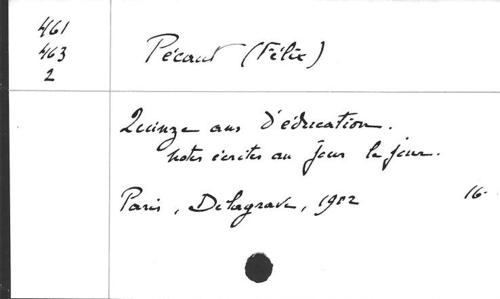 461
463
2
Pécaut (Félix)
Quinze ans d'éducation.
Notes écrites au jour le jour.
Paris, Delagrave, 1902
16-